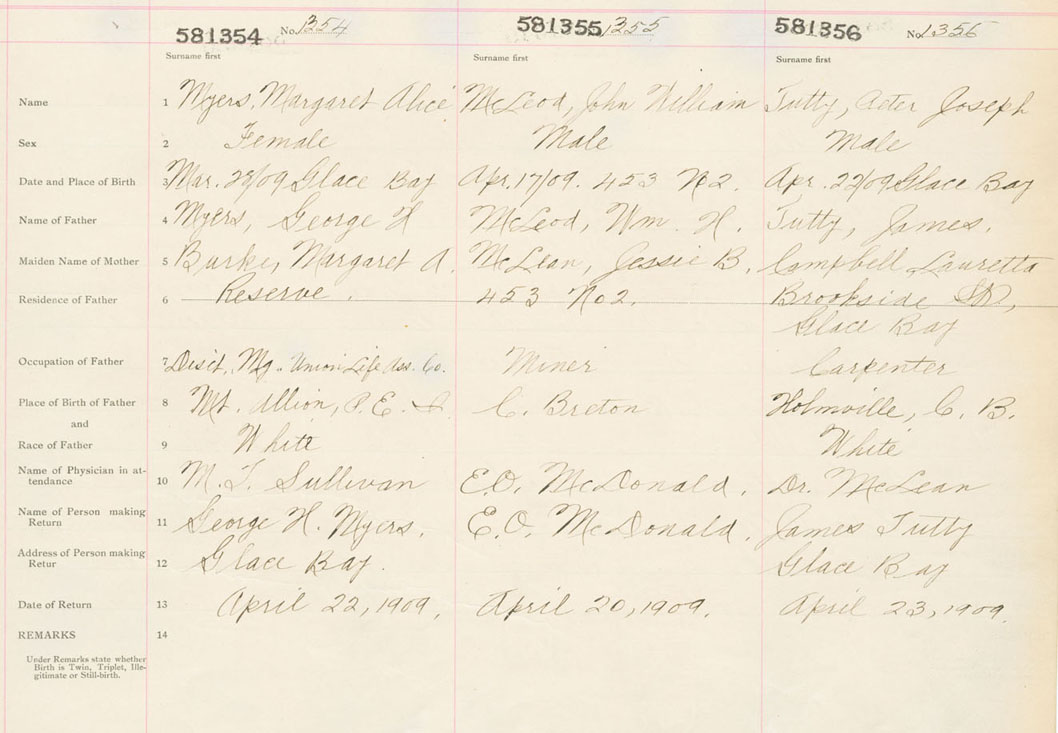 581354 No. 1354 581355 1355 581356 No. 1356
Surname first Surname first Surname first
Name 1 Myers, Margaret Alice McLeod, John William Tutty, Peter Joseph
Sex 2 Female Male Male
Date and Place of Birth 3 Mar. /09 Glace Bay Apr. 17/09. 453 No 2. Apr. 22/09 Glace Bay
Name of Father 4 Myers, George H McLeod, Wm. H. Tutty, James.
Maiden Name of Mother 5 Burke, Margaret A. McLean, Jessie B. Campbell Lauretta
Residence of Father 6 Reserve. 453 No 2. Brookside St,
Glace Bay
Occupation of Father 7 Disct. Mg. Union Life Ass. Co. Miner Carpenter
Place of Birth of Father 8 Mt. P.E.I. C. Breton Holmville, C. B.
and
Race of Father 9 White White
Name of Physician in at-
tendance 10 M. T. Sullivan E.O. McDonald. Dr. McLean
Name of Person making
Return 11 George H. Myers. E.O. McDonald. James Tutty
Address of Person making
Retur 12 Glace Bay. Glace Bay
Date of Return 13 April 22, 1909. April 20, 1909. April 23, 1909.
REMARKS 14
Under Remarks state whether
Birth is Twin, Triplet, Ille-
gitimate or Still-birth.